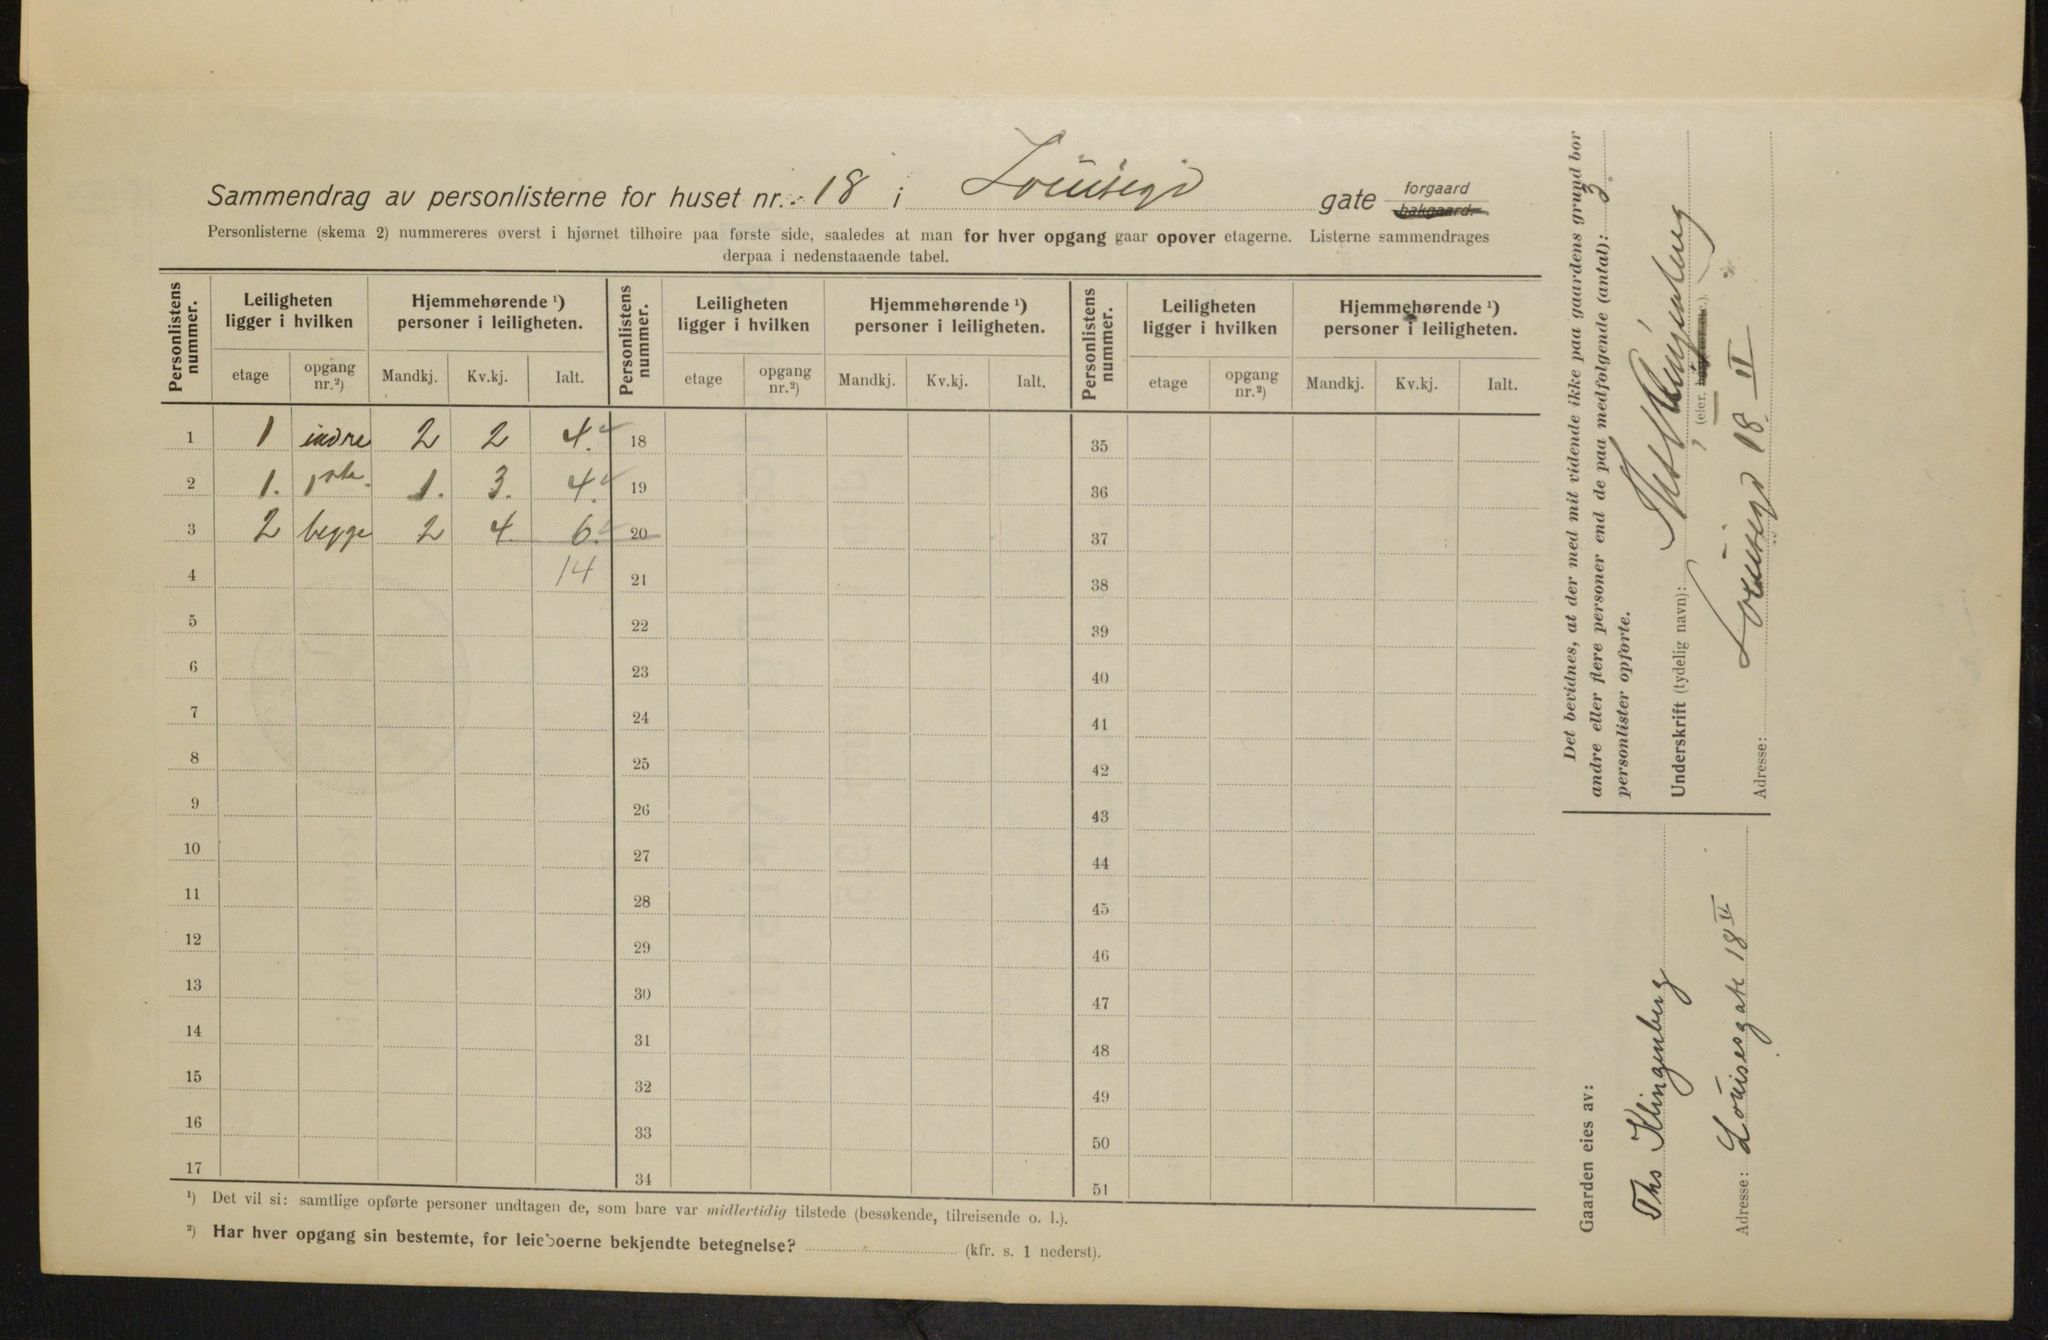 Sammendrag av personlisterne for huset nr. 18 i Louisegd gate forgaard bakgaard.
Personlisterne (skema 2) nummereres øverst i hjørnet tilhøire paa første side, saaledes at man for hver opgang gaar opover etagerne. Listerne sammendrages
derpaa i nedenstaaende tabel.
Personlistens nummer. Leiligheten ligger i hvilken Hjemmehørende ¹) personer i leiligheten. Personlistens nummer. Leiligheten ligger i hvilken Hjemmehørende ¹) personer i leiligheten. Personlistens nummer. Leiligheten ligger i hvilken Hjemmehørende ¹) personer i leiligheten.
etage opgang nr.²) Mandkj. Kv.kj. Ialt. etage opgang nr.²) Mandkj. Kv.kj. Ialt. etage opgang nr.²) Mandkj. Kv.kj. Ialt.
1 1 indre 2 2 4. 18 35
2 1. 1. 3. 4. 19 36
3 2 begge 2 4 6. 20 37
4 14 21 38
5 22 39
6 23 40
7 24 41
8 25 42
9 26 43
10 27 44
11 28 45
12 29 46
13 30 47
14 31 48
15 32 49
16 33 50
17 34 51
¹) Det vil si: samtlige opførte personer undtagen de, som bare var midlertidig tilstede (besøkende, tilreisende o. l.).
²) Har hver opgang sin bestemte, for leieboerne bekjendte betegnelse? (kfr. s. 1 nederst).
Det bevidnes, at der med mit vidende ikke paa gaardens grund bor
andre eller flere personer end de paa medfolgende (antal): 3
personlister opførte.
Underskrift (tydelig navn): Ths Klingenberg
(eier,
Adresse: Louisegd 18 II
Gaarden eies av:
Ths Klingenberg
Adresse: Louisesgate 18 II